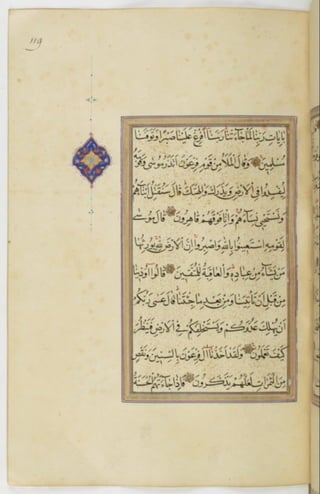 119
بِآيَاتِ رَبِّنَا لَمَّا جَاءَتْنَا رَبَّنَا أَفْرِغْ عَلَيْنَا صَبْرًا وَتَوَفَّنَا
مُسْلِمِينَ وَقَالَ الْمَلَأُ مِنْ قَوْمِ فِرْعَوْنَ أَتَذَرُ مُوسَى وَقَوْمَهُ
لِيُفْسِدُوا فِي الْأَرْضِ وَيَذَرَكَ وَآلِهَتَكَ قَالَ سَنُقَتِّلُ أَبْنَاءَهُمْ
وَنَسْتَحْيِي نِسَاءَهُمْ وَإِنَّا فَوْقَهُمْ قَاهِرُونَ قَالَ مُوسَى
لِقَوْمِهِ اسْتَعِينُوا بِاللَّهِ وَاصْبِرُوا إِنَّ الْأَرْضَ لِلَّهِ يُورِثُهَا
مَنْ يَشَاءُ مِنْ عِبَادِهِ وَالْعَاقِبَةُ لِلْمُتَّقِينَ قَالُوا أُوذِينَا
مِنْ قَبْلِ أَنْ تَأْتِيَنَا وَمِنْ بَعْدِ مَا جِئْتَنَا قَالَ عَسَى رَبُّكُمْ
أَنْ يُهْلِكَ عَدُوَّكُمْ وَيَسْتَخْلِفَكُمْ فِي الْأَرْضِ فَيَنْظُرَ
كَيْفَ تَعْمَلُونَ وَلَقَدْ أَخَذْنَا آلَ فِرْعَوْنَ بِالسِّنِينَ وَنَقْصٍ
مِنَ الثَّمَرَاتِ لَعَلَّهُمْ يَذَّكَّرُونَ فَإِذَا جَاءَتْهُمُ الْحَسَنَةُ